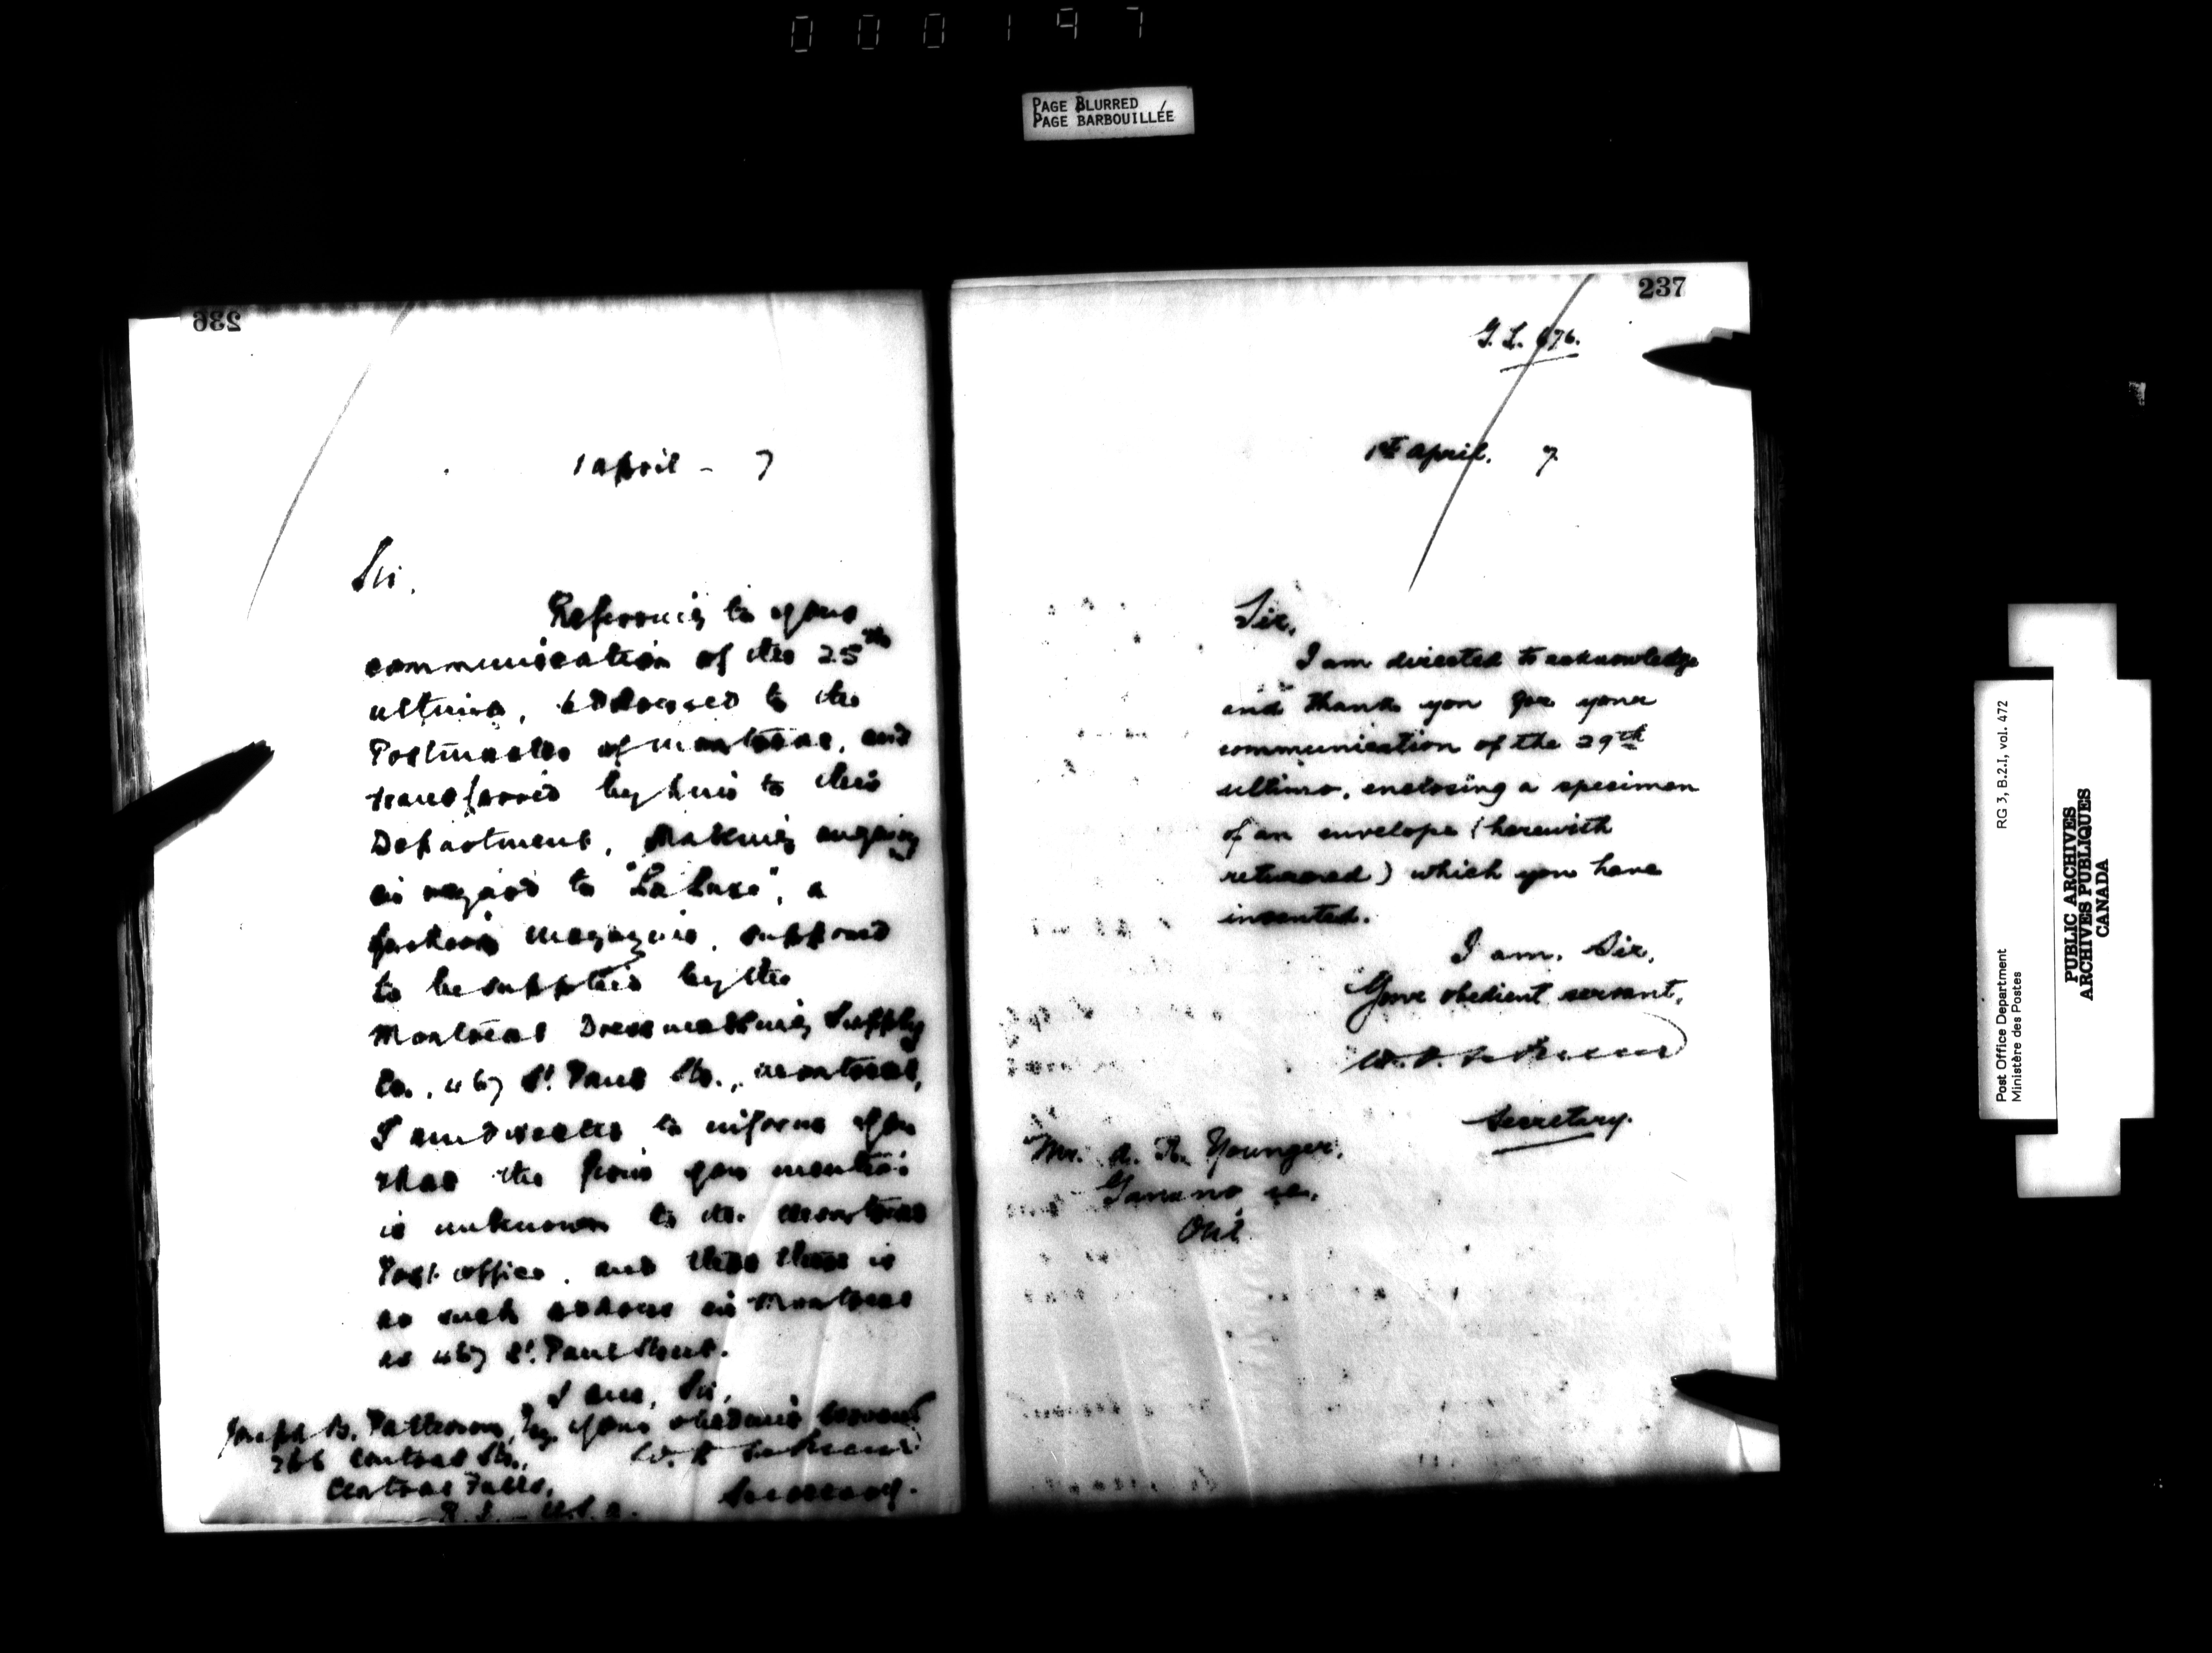 000197
PAGE BLURRED
PAGE BARBOUILLÉE
236
1 April - 7
Sir,
Referring to your
communication of the 25th
ultimo, addressed to the
Postmaster of Montreal, and
transferred by him to this
Department, making enquiry
in regard to "La Luxe", a
fashion magazine, supposed
to be supplied by the
Montreal Dressmaking Supply
Co., 467 St. Paul Str., Montreal,
I am directed to inform you
that the firm you mention
is unknown to the Montreal
Post office, and that there is
no such address in Montreal
as 467 St. Paul Street.
I am, Sir,
Your obedient servant
Secretary.
Joseph B. Patterson, Esq.
266 Central Str.,
Central Falls,
R. I. - U.S.A.
237
G.L. 676.
1st April. 7
Sir,
I am directed to acknowledge
and thank you for your
communication of the 29th
ultimo, enclosing a specimen
of an envelope (herewith
returned) which you have
invented.
I am, Sir,
Your obedient servant,
Secretary.
Mr. A. R. Younger,
Ont
Post Office Department
Ministère des Postes
RG 3, B.2.I, vol. 472
PUBLIC ARCHIVES
ARCHIVES PUBLIQUES
CANADA